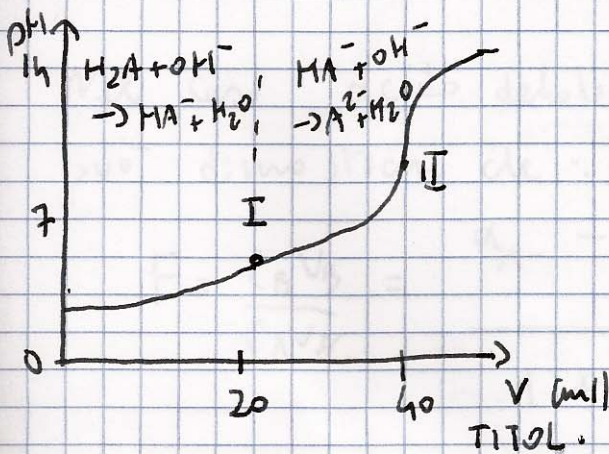 pH
14
H₂A + OH⁻
→ HA⁻ + H₂O
HA⁻ + OH⁻
→ A²⁻ + H₂O
II
I
7
0
20
40
V (ml)
TITOL.